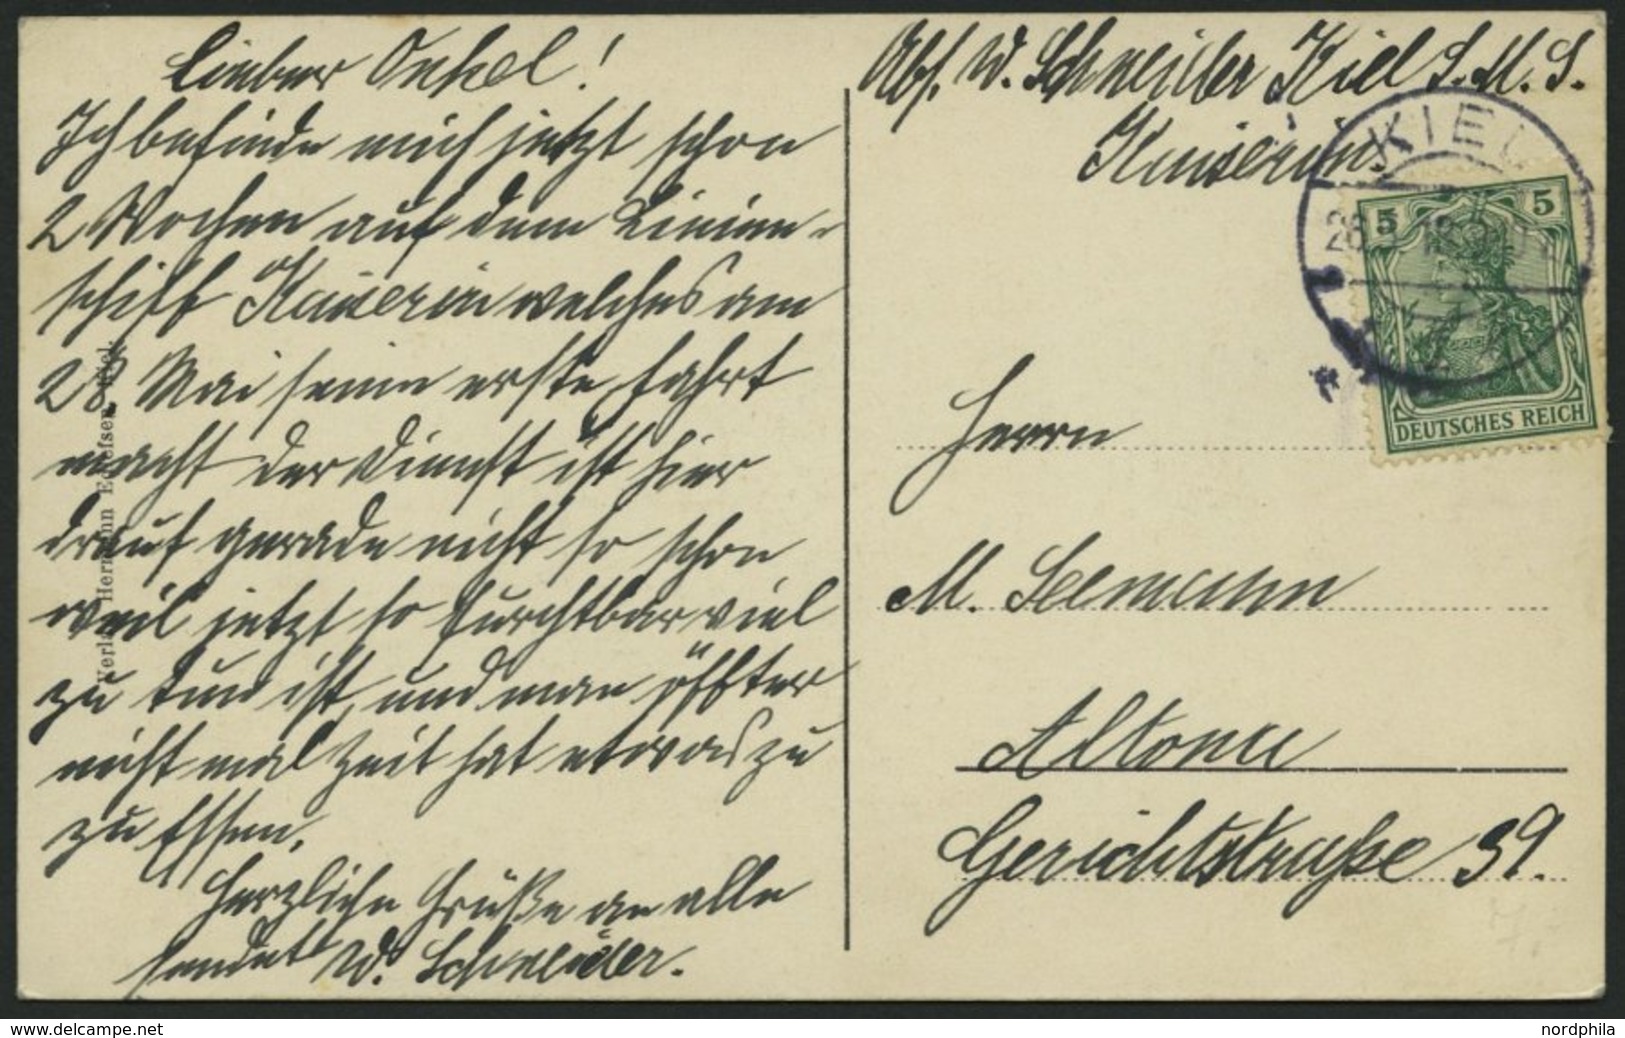 Lieber Onkel!
Ich befinde mich jetzt schon
2 Wochen auf dem Linien-
schiff Kaiserin welches am
28. Mai seine erste Fahrt
macht der Dienst ist hier
drauf gerade nicht so schön
weil jetzt so furchtbar viel
zu tun ist, und man öffter
nicht mal Zeit hat etwas zu
zu Essen.
Herzliche Grüße an alle
sendet W. Schneider.
Abs. W. Schneider Kiel S.M.S.
Kaiserin
KIEL
5 5
DEUTSCHES REICH
Herrn
M. Seemann
Altona
Gerichtstraße 39.
Hermann
www.delcampe.net
nordphila